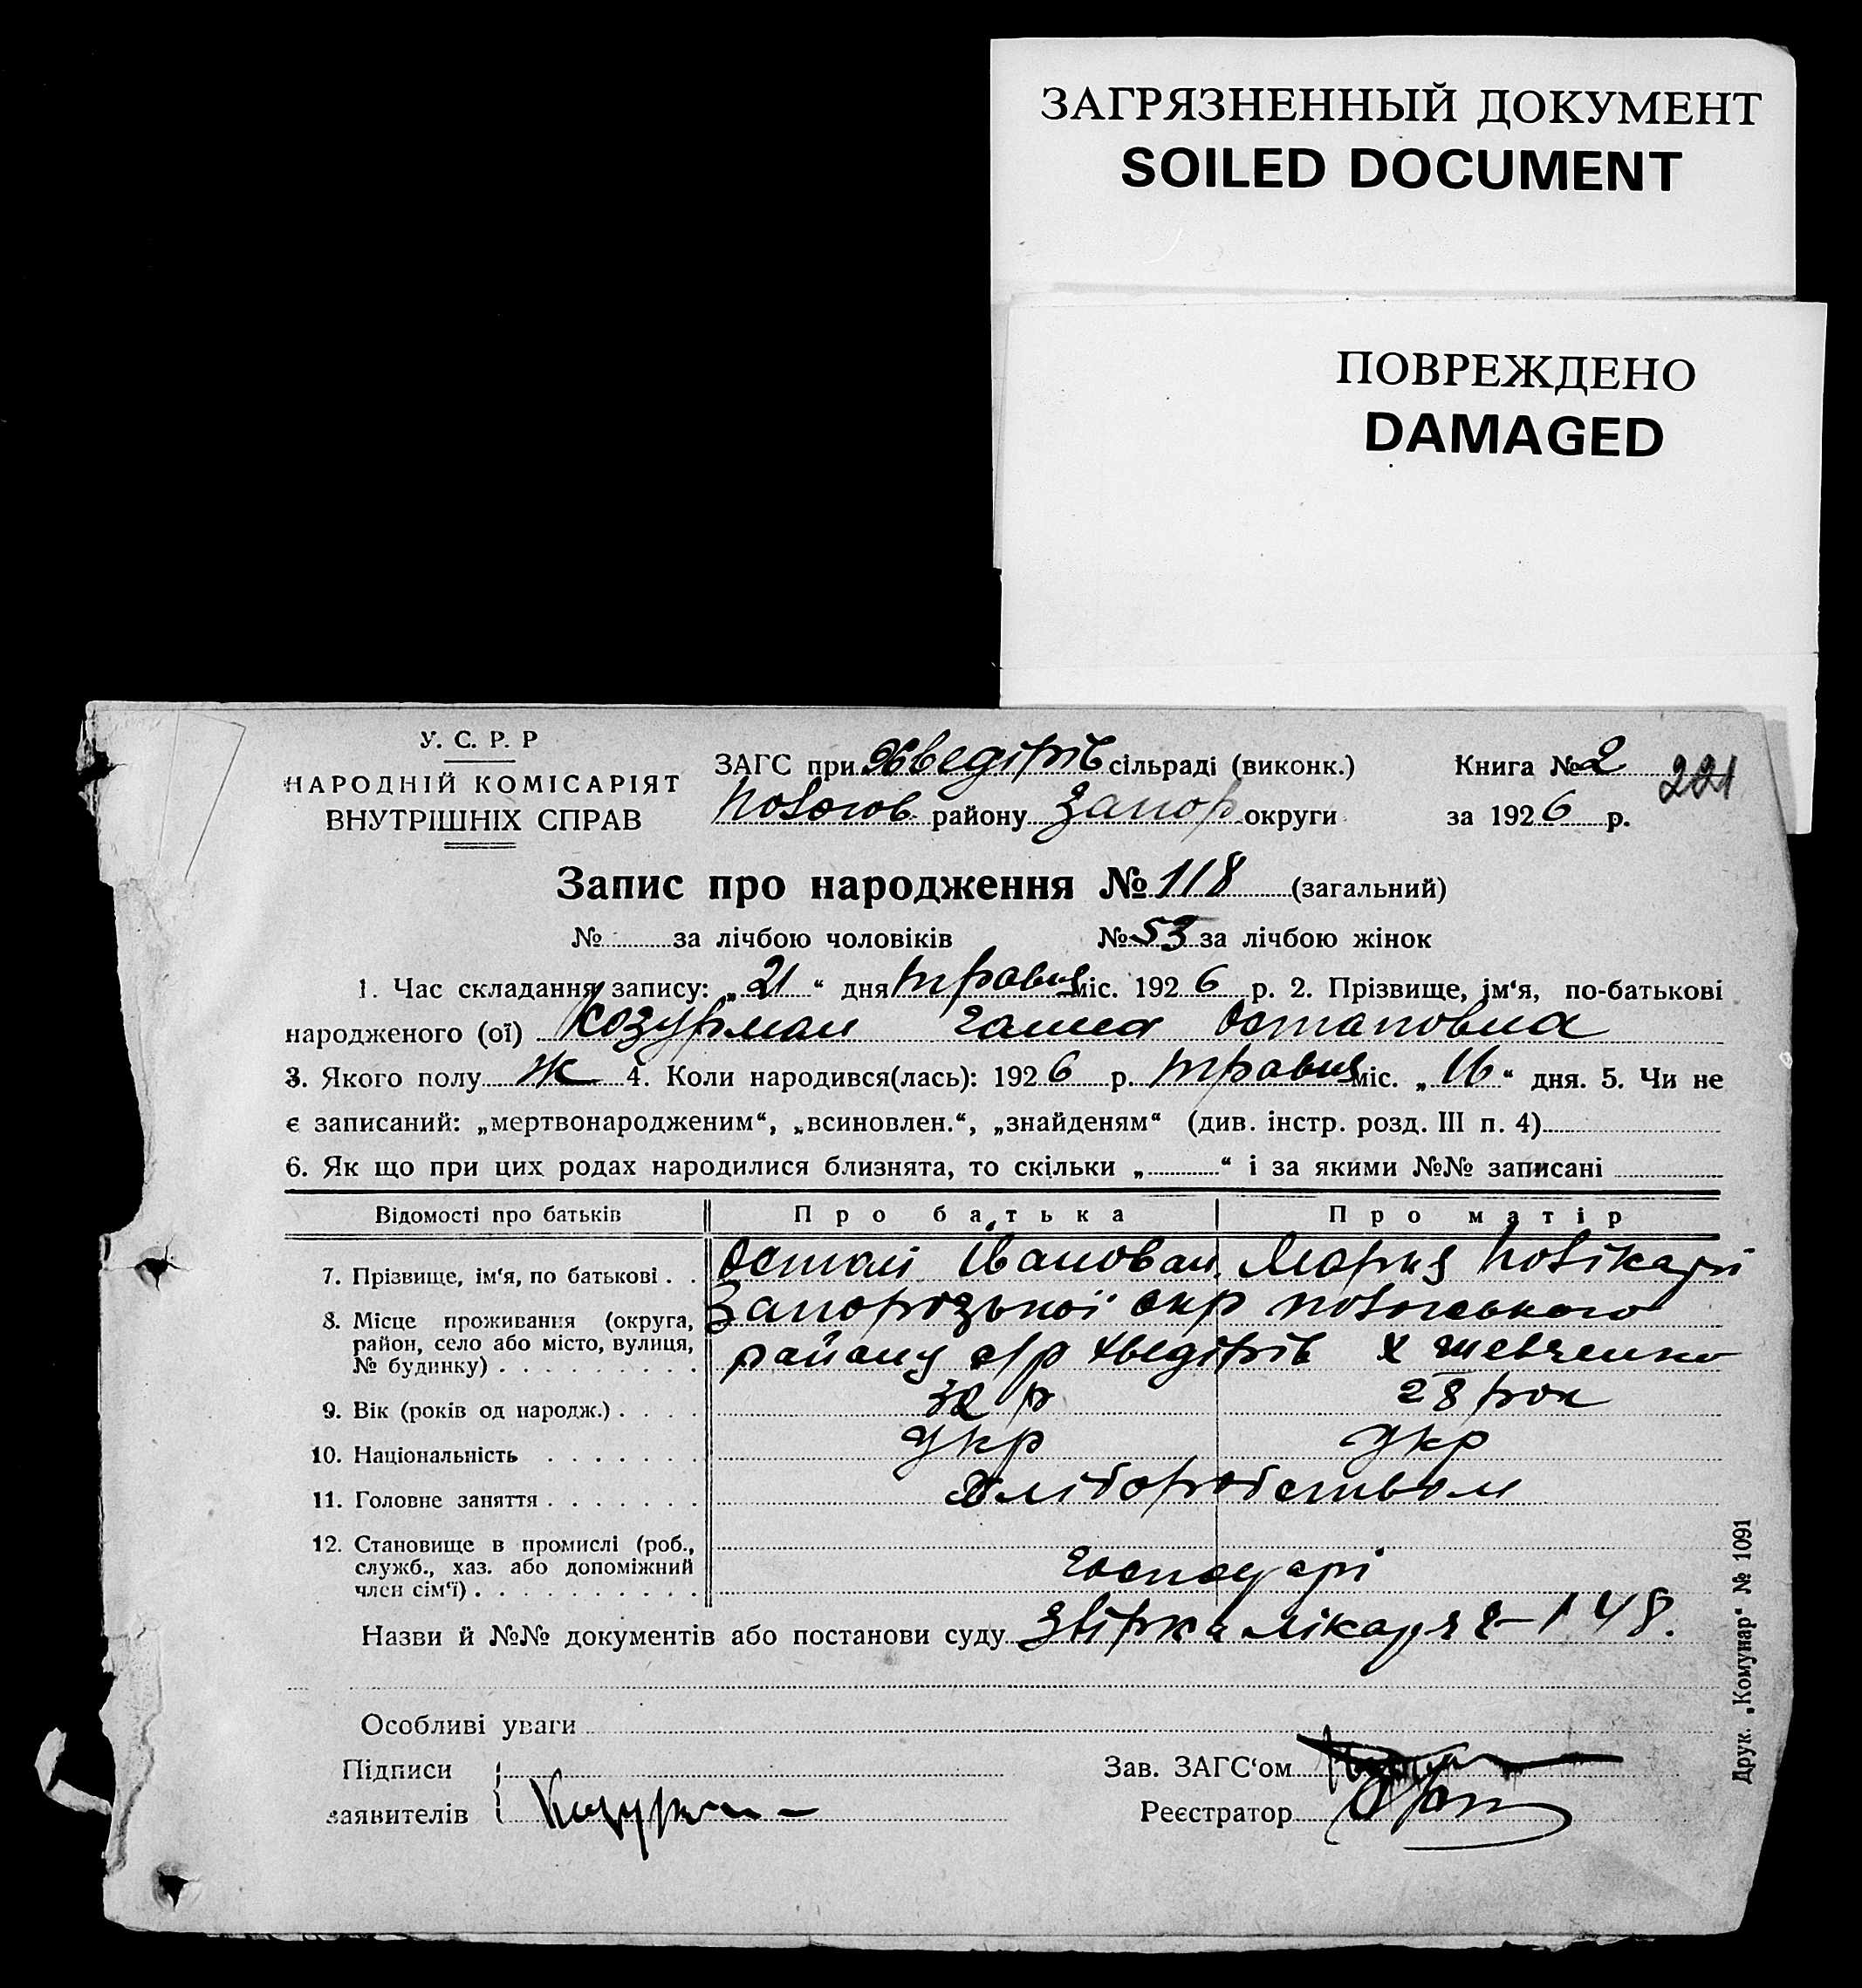 ЗАГРЯЗНЕННЫЙ ДОКУМЕНТ
SOILED DOCUMENT
ПОВРЕЖДЕНО
DAMAGED
У. С. Р. Р
НАРОДНІЙ КОМІСАРІЯТ
ВНУТРІШНІХ СПРАВ
ЗАГС при Хведірів сільраді (виконк.)
Пологов району Запор округи
Книга № 2
за 1926 р.
221
Запис про народження № 118 (загальний)
№ за лічбою чоловіків № 53 за лічбою жінок
1. Час складання запису: „21“ дня травня міс. 1926 р. 2. Прізвище, ім'я, по-батькові
народженого (ої) Козурман Ганна Остаповна
3. Якого полу Ж 4. Коли народився(лась): 1926 р. травня міс. „16“ дня. 5. Чи не
є записаний: „мертвонародженим“, „всиновлен.“, „знайденям“ (див. інстр. розд. III п. 4)
6. Як що при цих родах народилися близнята, то скільки „ “ і за якими №№ записані
Відомості про батьків Про батька Про матір
7. Прізвище, ім'я, по батькові . . Остап Іванован. Мария
8. Місце проживання (округа, район, село або місто, вулиця, № будинку) Запорізької окр пологського
району с/р Хведірів х Шевченко
9. Вік (років од народж.) 32 р 28 рок
10. Національність Укр Укр
11. Головне заняття Хліборобством
12. Становище в промислі (роб., служб., хаз. або допоміжний член сім'ї) господарі
Назви й №№ документів або постанови суду лікаря 148.
Особливі уваги
Підписи
заявителів Козурман
Зав. ЗАГС'ом
Реєстратор
Друк. „Комунар“ № 1091